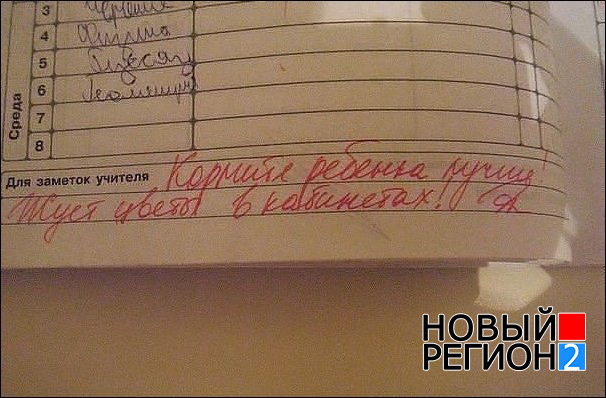 3 черчение
4 Физика
5
6 Геометрия
7
8
Среда
Для заметок учителя Кормите ребенка лучше!
Жует цветы в кабинетах!
НОВЫЙ
РЕГИОН 2